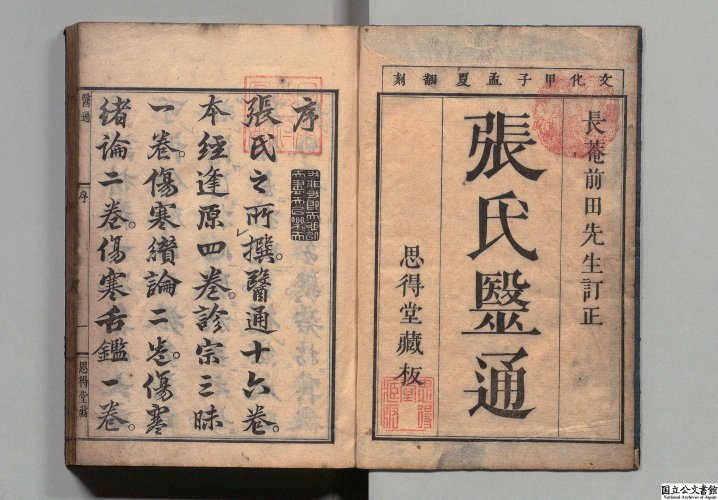 文化甲子孟夏翻刻
長菴前田先生訂正
張氏毉通
思得堂藏板
序
張氏之所撰。醫通十六卷。
本經逢源四卷。診宗三昧
一卷。傷寒纘論二卷。傷寒
緒論二卷。傷寒舌鑑一卷。
醫通
序
一
思得堂
国立公文書館
National Archives of Japan